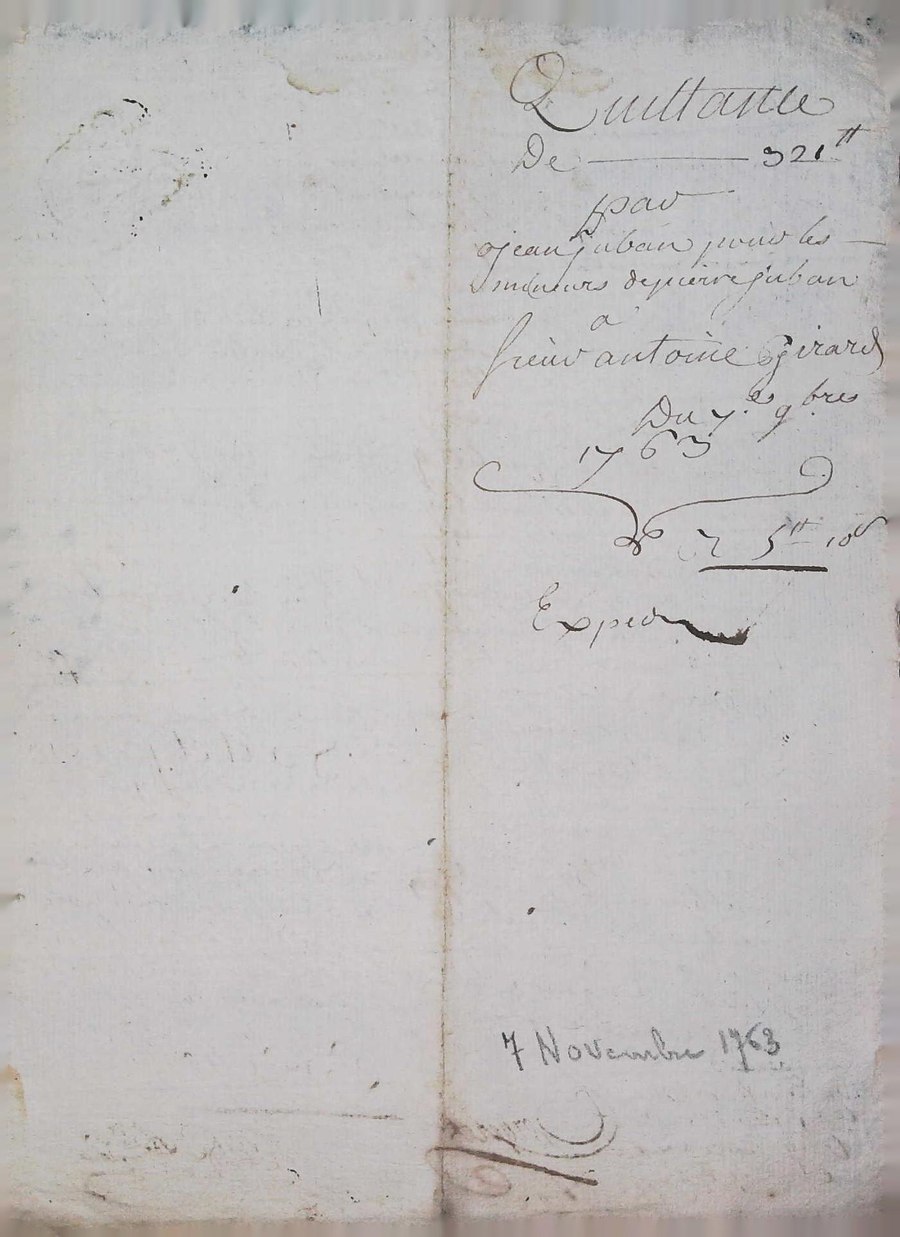 Quittance
De ——— 321tt
par
jean juban pour les
mineurs de pierre juban
a
sieur antoine Girard
Du 7.e 9.bres
1763
5tt 10s
Exped
7 Novembre 1763